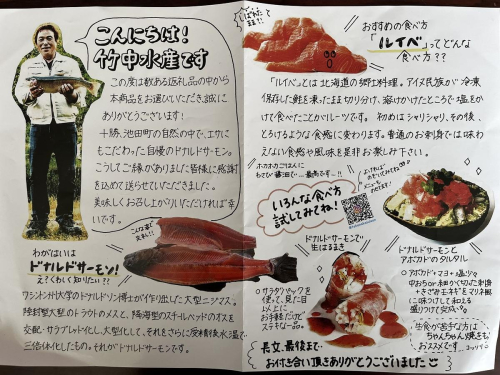 こんにちは!
竹中水産です
この度は数ある返礼品の中から
本商品をお選びいただき、誠に
ありがとうございます!
十勝、池田町の自然の中で、エサに
もこだわった自慢のドナルドサーモン。
こうしてご縁がありました皆様に感謝
を込めて送らせていただきました。
美味しくお召し上がりいただければ幸
いです。
わがはいは
ドナルドサーモン!
え?くわしく知りたい??
こんな姿で
ワシントン州大学のドナルドソン博士が作り出した大型ニジマス。
陸封型大型のトラウトのメスと、降海型のスチールヘッドのオスを
交配・サラブレッド化し、大型にして、それをさらに
三倍体化したもの。それがドナルドサーモンです。
おすすめの食べ方
「ルイベ」ってどんな
食べ方??
「ルイベ」とは北海道の郷土料理。アイヌ民族が冷凍
保存した鮭を凍ったまま切り分け、溶けかけたところで塩をか
けて食べたことがルーツです。初めはシャリシャリ、その後、
とろけるような食感に変わります。普通のお刺身では味わ
えない食感や風味を是非お楽しみ下さい。
ホカホカごはんに
わさび醤油で…最高です…!!
いろんな食べ方
試してみてね!
ドナルドサーモンで
生はるまき
サラダパックを
使って、見た目
以上に
お手軽だけど
ステキな一品。
ドナルドサーモンと
アボカドのタルタル
アボカド+マヨ+塩少々
中おちor細かく切った刺身
+きざみネギをゴマ油
に味つけして和える
盛りつけて完成☆
生食が苦手な方は
ちゃんちゃん焼きも
おススメです
長文、最後まで
お付き合い頂きありがとうございました